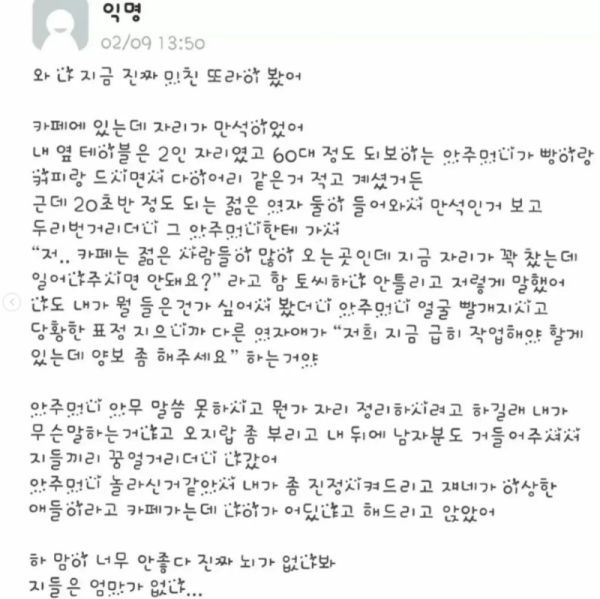 익명
02/09 13:50
와 나 지금 진짜 미친 또라이 봤어
카페에 있는데 자리가 만석이었어
내 옆 테이블은 2인 자리였고 60대 정도 되보이는 아주머니가 빵이랑
커피랑 드시면서 다이어리 같은거 적고 계셨거든
근데 20초반 정도 되는 젊은 여자 둘이 들어와서 만석인거 보고
두리번거리더니 그 아주머니한테 가서
“저.. 카페는 젊은 사람들이 많이 오는곳인데 지금 자리가 꽉 찼는데
일어나주시면 안돼요?” 라고 함 토씨하나 안틀리고 저렇게 말했어
나도 내가 뭘 들은건가 싶어서 봤더니 아주머니 얼굴 빨개지시고
당황한 표정 지으니까 다른 여자애가 “저희 지금 급히 작업해야 할게
있는데 양보 좀 해주세요” 하는거야
아주머니 아무 말씀 못하시고 뭔가 자리 정리하시려고 하길래 내가
무슨말하는거냐고 오지랖 좀 부리고 내 뒤에 남자분도 거들어주셔서
지들끼리 꿍얼거리더니 나갔어
아주머니 놀라신거같아서 내가 좀 진정시켜드리고 쟤네가 이상한
애들이라고 카페가는데 나이가 어딨냐고 해드리고 앉았어
하 맘이 너무 안좋다 진짜 뇌가 없나봐
지들은 엄마가 없나...